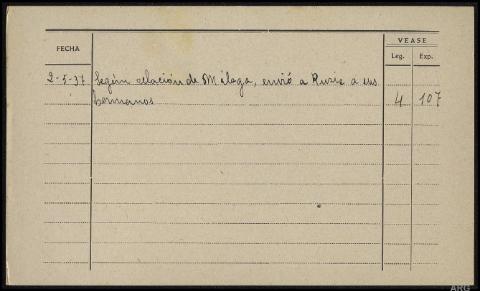 FECHA
VEASE
Leg. Exp.
2-5-37 Según relación de Málaga, envió a Rusia a sus
hermanos 4 107
ARG